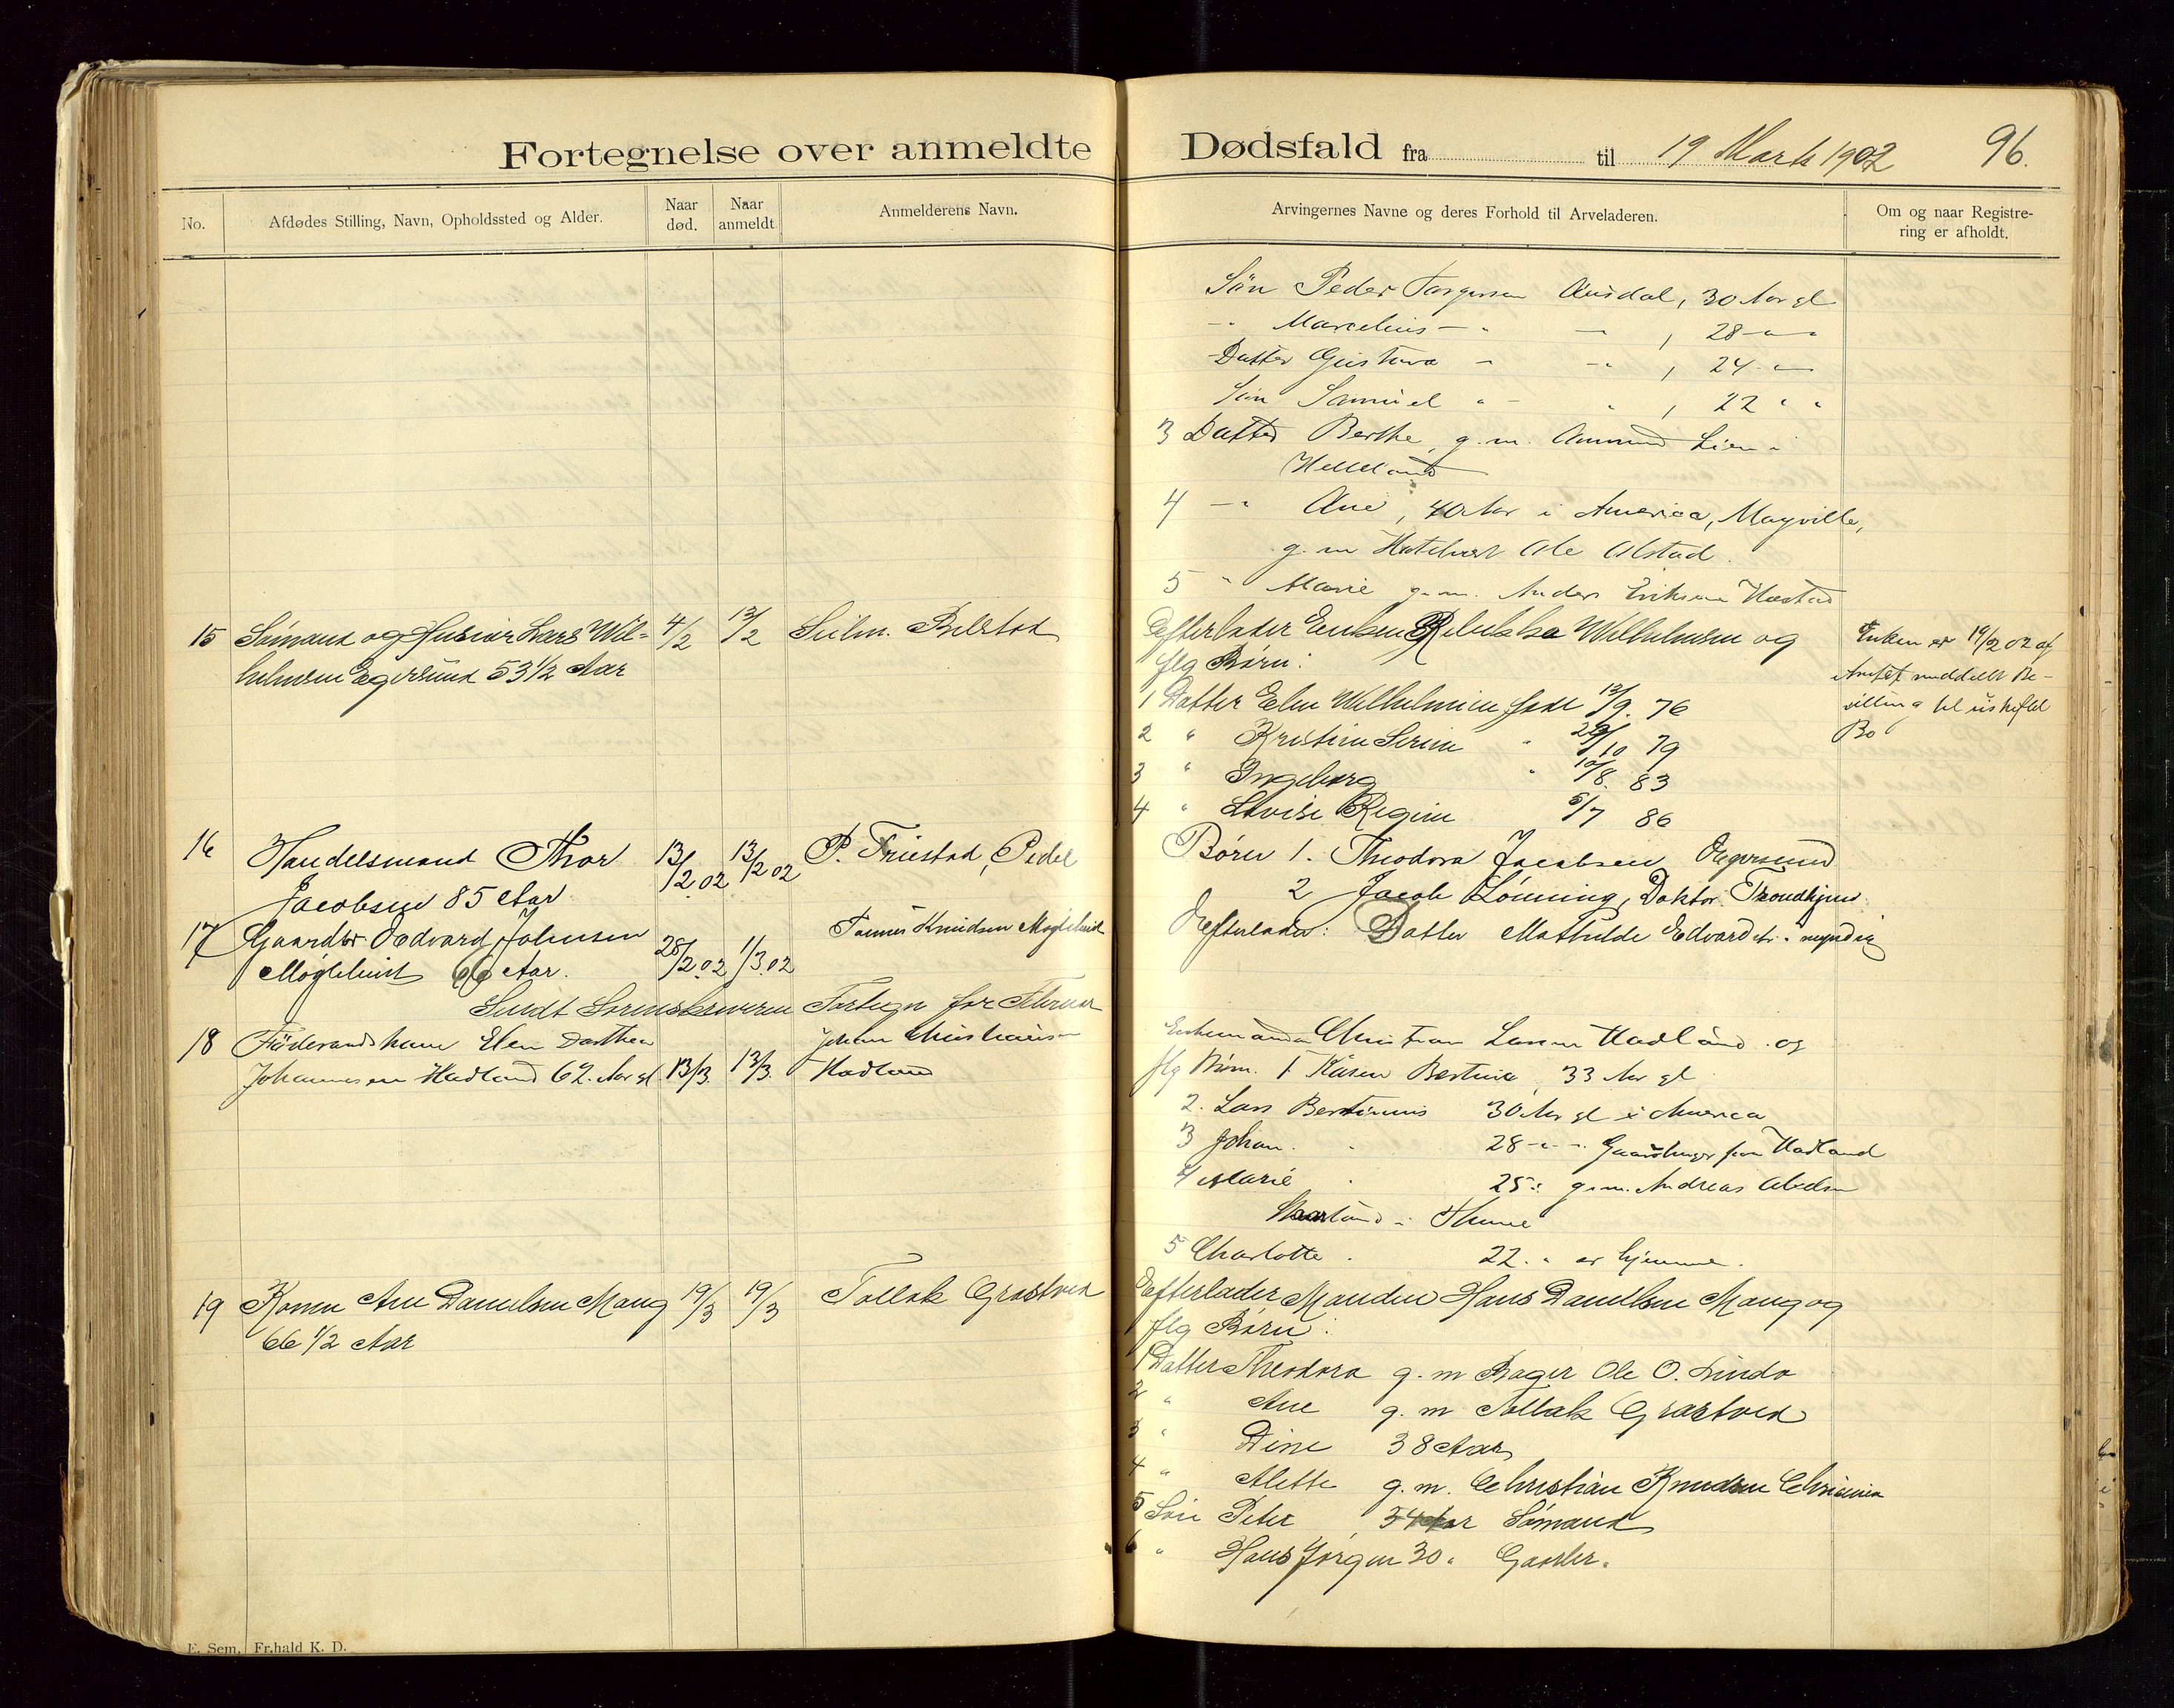 Fortegnelse over anmeldte Dødsfald fra til 19 Marts 1902 96.
No. Afdødes Stilling, Navn, Opholdssted og Alder. Naar død. Naar anmeldt Anmelderens Navn. Arvingernes Navne og deres Forhold til Arveladeren. Om og naar Registrering er afholdt.
Søn Peder Torgersen 30 Aar gl
" Marcelius - " - , 28 - " -
Datter Gustava - - " , 24 - " -
Søn Samuel " - " , 22 " "
3 Datter Berthe, g. m. Aamund Lien i
Helleland
4 - " Ane, 40 Aar i America, Mayville,
g. m Ole Alstad.
5 " Marie g. m. Anders Eriksen
15 Sømand og Huseier Lars Wil- 4/2 13/2
helmsen Egersund 53 1/2 Aar
Efterlader Enken Rebekka Wilhelmsen og
flg Børn:
1 Datter Elen Wilhelmine født 13/9. 76
2 " Kristine Serine " 29/10 79
3 " Ingeborg " 10/8. 83
4 " Lovise Regine 5/7 86
Enken er 19/2 02 af
Amtet meddelt Be-
villing til uskiftet
Bo
16 Handelsmand Thor 13/2 02 13/2 02 P. Friestad, Pedel
Jacobsen 85 Aar
Børn 1. Theodora Jacobsen Egersund
2 Jacob Lønning, Doktor Trondhjem.
17 Gaardbr Edvard Johnsen 28/2 02 1/3.02 Tønnes Knudsen Møglehuist
Møglehuist 66 Aar.
Efterlader: Datter Mathilde Edvardstr. myndig
Sendt Sorenskriveren Fortegn for Februar
18 Føderaadskone Elen Dorthea Johan Christiansen
Johannesen Hadland 62 Aar gl 13/3. 13/3. Hadland
Enkemanden Christian Larsen Hadland og
flg Børn. 1 Karen Bertine, 33 Aar gl
2. Lars Bertinius 30 Aar gl i America
3 Johan. " 28 - " - Gaardbruger paa Hadland
4 Marie " 25 " g. m. Andreas Abelsen
5 Charlotte. 22. " er hjemme.
19 Konen Ane Danielsen Maug 19/3 19/3 Tollak Grøstved
66 1/2 Aar
Efterlader Manden Hans Danielsen Maug og
flg Børn:
1 Datter Theodora g. m Bager Ole O. Lindø
2 " Ane g. m Tollak Grøstved
3 " Dine 38 Aar
4 " Alette g. m. Christian Knudsen Christiania
5 Søn Peter 34 Aar Sømand
6 " Hans Jørgen 30 "
E. Sem, Fr.hald K. D.